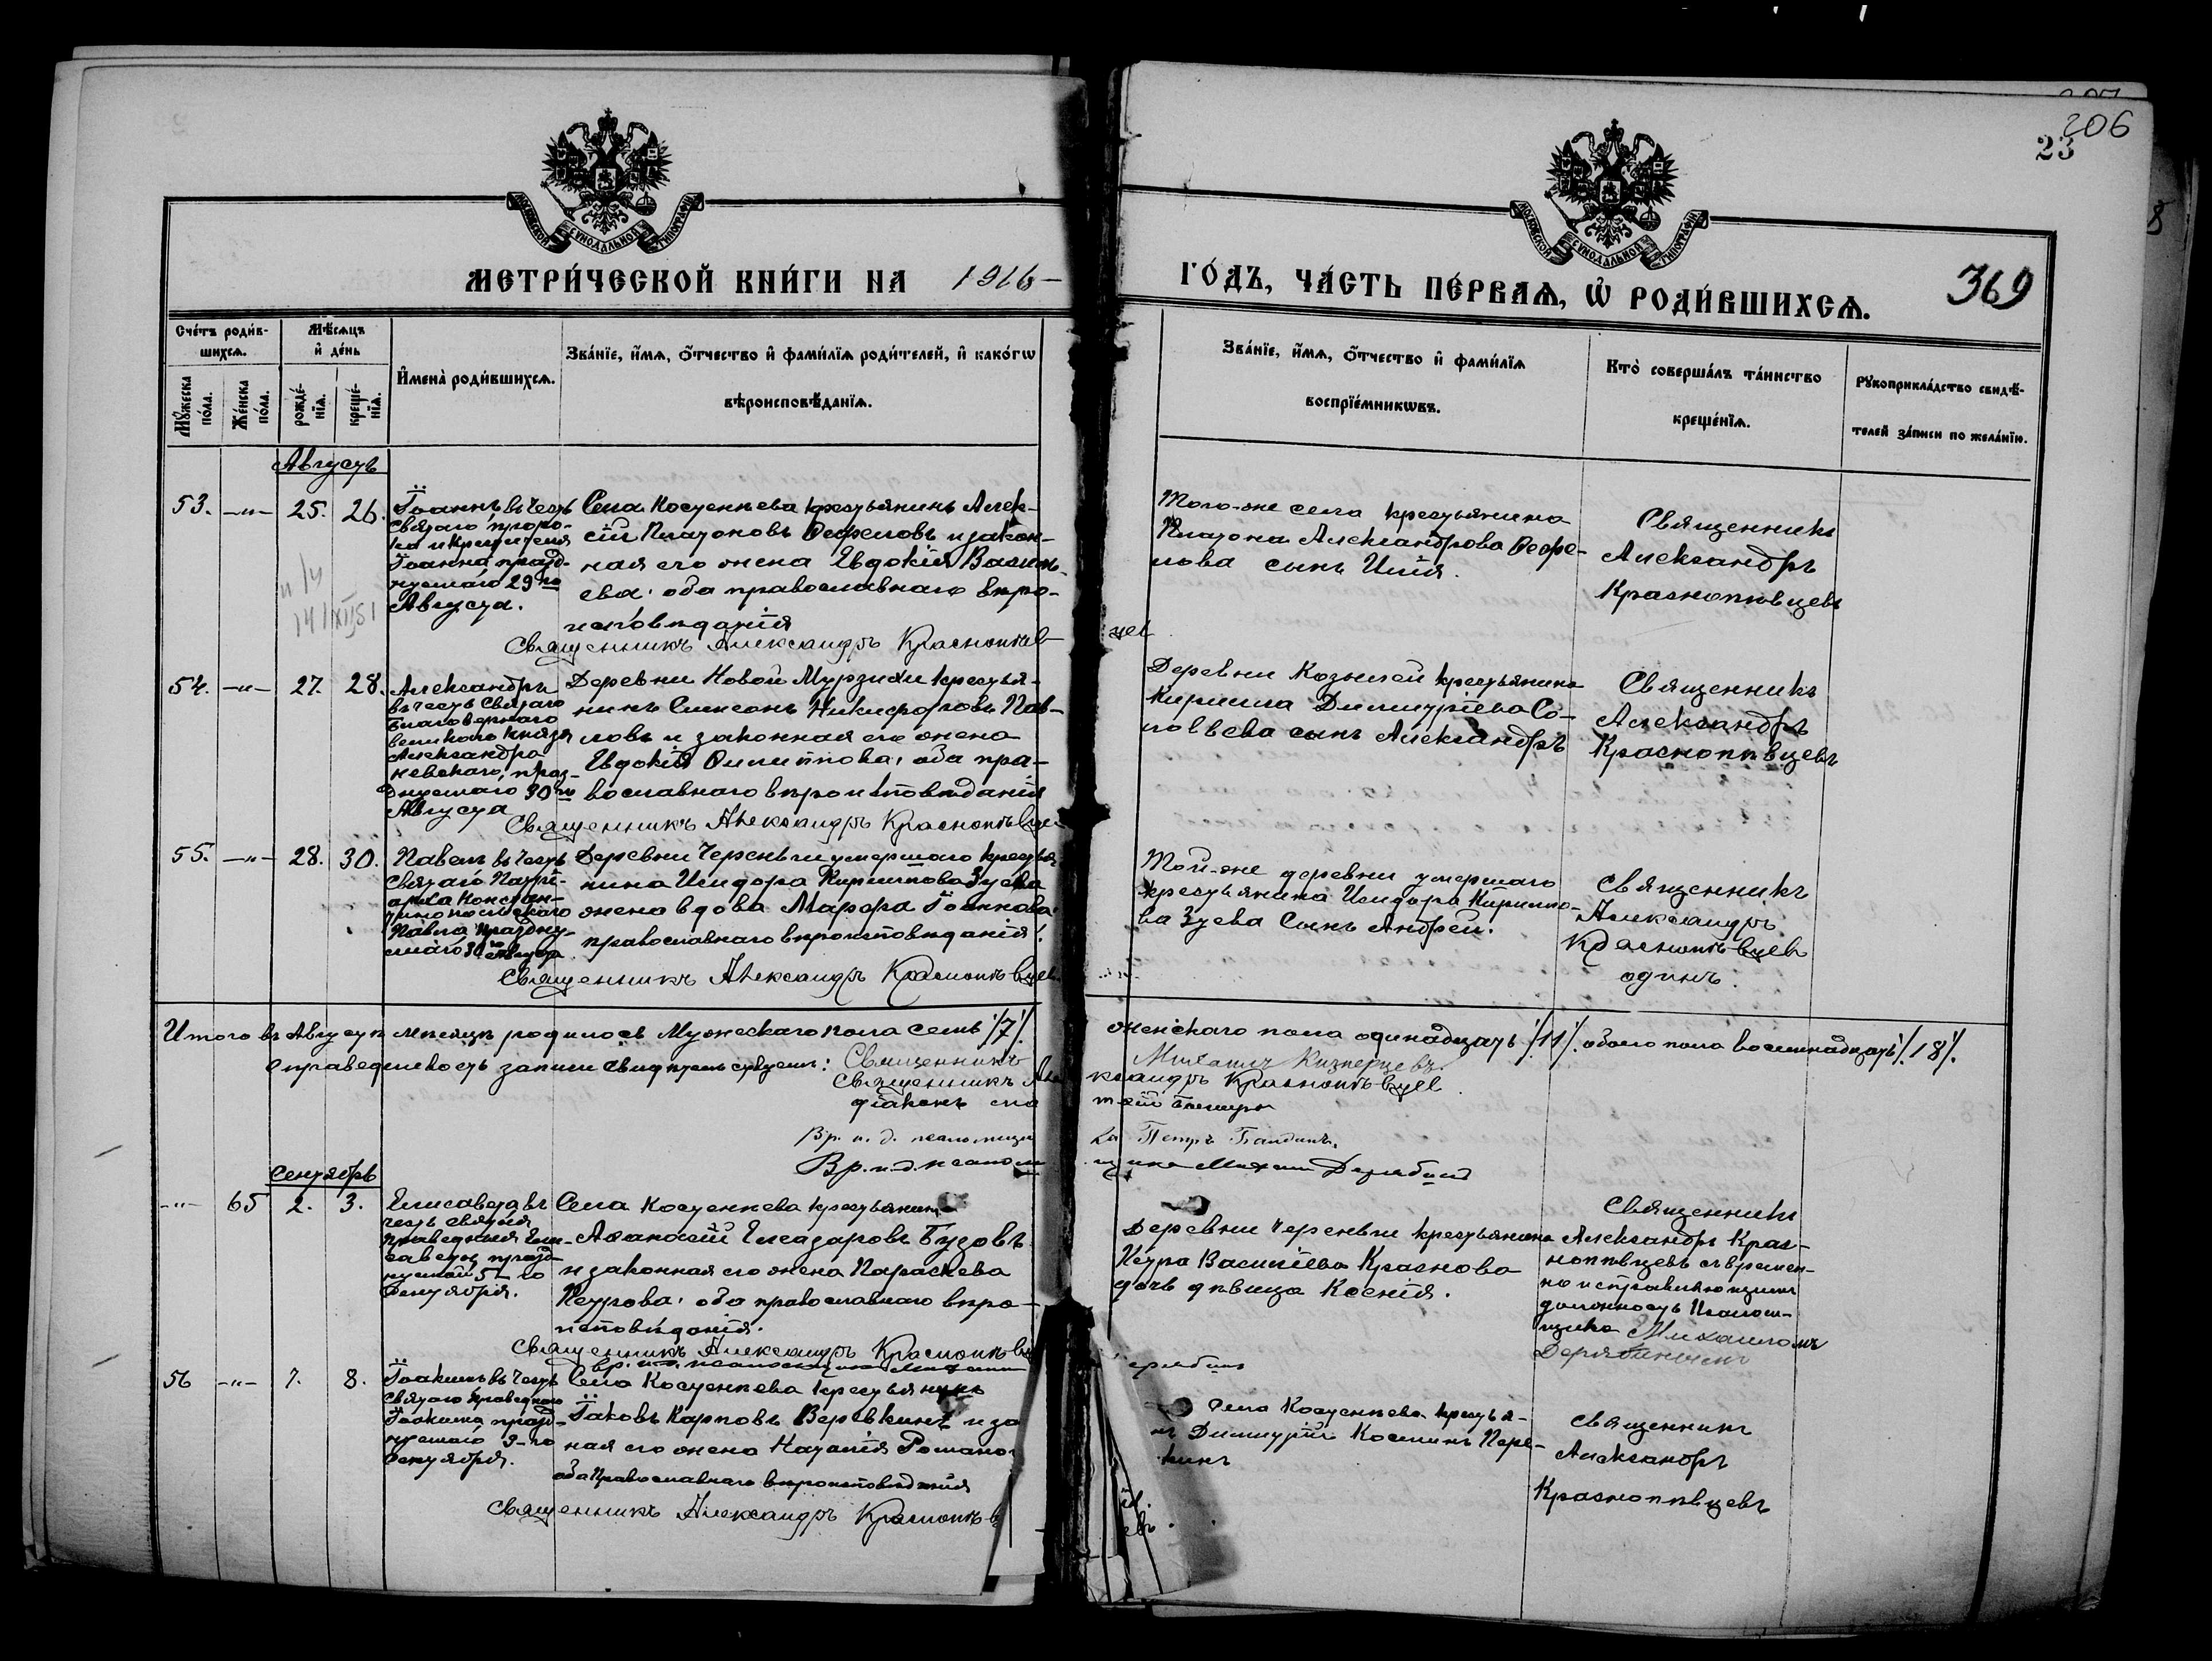 206
23
МОСКОВСКОЙ СѴНОДАЛЬНОЙ ТИПОГРАФІИ
МОСКОВСКОЙ СѴНОДАЛЬНОЙ ТИПОГРАФІИ
МЕТРИ́ЧЕСКОЙ КНИ́ГИ НА 1916-
ГО́ДЪ, ЧА́СТЬ ПЕ́РВАѦ, Ѡ РОДИ́ВШИХСѦ.
369
Сче́тъ роди́в-
шихсѧ.
Мѣ́сѧцъ
и де́нь
Мꙋ́жеска
по́ла.
Же́нска
по́ла.
рожде́-
нїѧ.
креще́-
нїѧ.
Имена̀ роди́вшихсѧ.
Зва́нїе, и́мѧ, ѻ́тчество и фами́лїѧ роди́телей, и како́гѡ
вѣроисповѣ́данїѧ.
Зва́нїе, и́мѧ, ѻ́тчество и фами́лїѧ
воспрїе́мникѡвъ.
Кто̀ соверша́лъ та́инство
креще́нїѧ.
Рꙋкоприкла́дство свидѣ́-
телей за́писи по жела́нїю.
Августъ
53. -"- 25. 26.
Іоаннъ въ честь
Святаго проро-
ка и Крестителя
Іоанна празд-
нуемаго 29го
Августа.
14/XII51
Села Костенеева крестьянинъ Алек-
сій Платоновъ Ѳефеловъ и закон-
ная его жена Евдокія Василь-
ева; оба православнаго вѣро-
исповѣданія
Священникъ Александръ Краснопѣв
цев
Того-же села крестьянина
Платона Александрова Ѳефе-
лова сынъ Илія.
Священникъ
Александръ
Краснопѣвцевъ
54. -"- 27. 28.
Александръ
въ честь Святаго
Благовернаго
великаго Князя
Александра
Невскаго, праз-
днуемаго 30го
Августа
Деревни Новой Мурзихи крестья-
нинъ Симеонъ Никифоровъ Пав-
ловъ и законная его жена
Евдокія Филиппова; оба пра-
вославнаго вѣроисповѣданія
Священникъ Александръ Краснопѣвце
Деревни Козылей крестьянина
Кирилла Димитріева Со-
ловьева сынъ Александръ
Священникъ
Александръ
Краснопѣвцевъ
55. -"- 28. 30.
Павелъ въ честь
Святаго Патрі-
арха Констан-
тинопольскаго
Павла праздну-
емаго 30го Августа
Деревни Черенги умершаго крестья-
нина Исидора Кириллова Зуева
жена вдова Марфа Іоаннова;
православнаго вѣроисповѣданія.
Священникъ Александръ Краснопѣвцев
Той-же деревни умершаго
крестьянина Исидора Кирилло-
ва Зуева сынъ Андрей.
Священникъ
Александръ
Краснопѣвцев
одинъ.
Итого въ Августѣ мѣсяцѣ родилось Мужескаго пола семь /7/.
женскаго пола одинадцать /11/. обоего пола восемнадцать /18/.
справедливость записи свидѣтельствуемъ: Священникъ
Михаилъ
Священникъ Але
ксандръ Краснопѣвцев
діаконъ
Вр. и. д. псаломщи
ка Петръ
Вр. и. д. псалом
щика Михаил Дерябинъ
Сентябрь
-"- 65 2. 3.
Елисавета въ
честь святыя
праведныя Ели-
саветы, празд-
нуемой 5-го
Сентября.
Села Костенеева крестьянинъ
Аѳанасій Елеазаровъ Бузовъ
и законная его жена Параскева
Петрова; оба православнаго вѣро-
исповѣданія.
Священникъ Александръ Краснопѣв
вр. и. д. псаломщика Михаил
Дерябинъ
Деревни Черенги крестьянина
Петра Василіева Краснова
дочь дѣвица Ксенія.
Священникъ
Александръ Крас-
нопѣвцевъ съ времен-
но исправляющимъ
должность Псалом-
щика Михаиломъ
Дерябинымъ
56 -"- 7. 8.
Іоакимъ въ честь
Святаго праведнаго
Іоакима, празд-
нуемаго 9-го
Сентября.
Села Костенеева крестьянинъ
Іаковъ Карповъ Веревкинъ и за
ная его жена Наталія Романо
оба Православнаго вѣроисповѣданія
Священникъ Александръ Краснопѣв
Села Костенеева крестья-
нъ Димитрій Косминъ Пере-
кинъ
Священникъ
Александръ
Краснопѣвцевъ